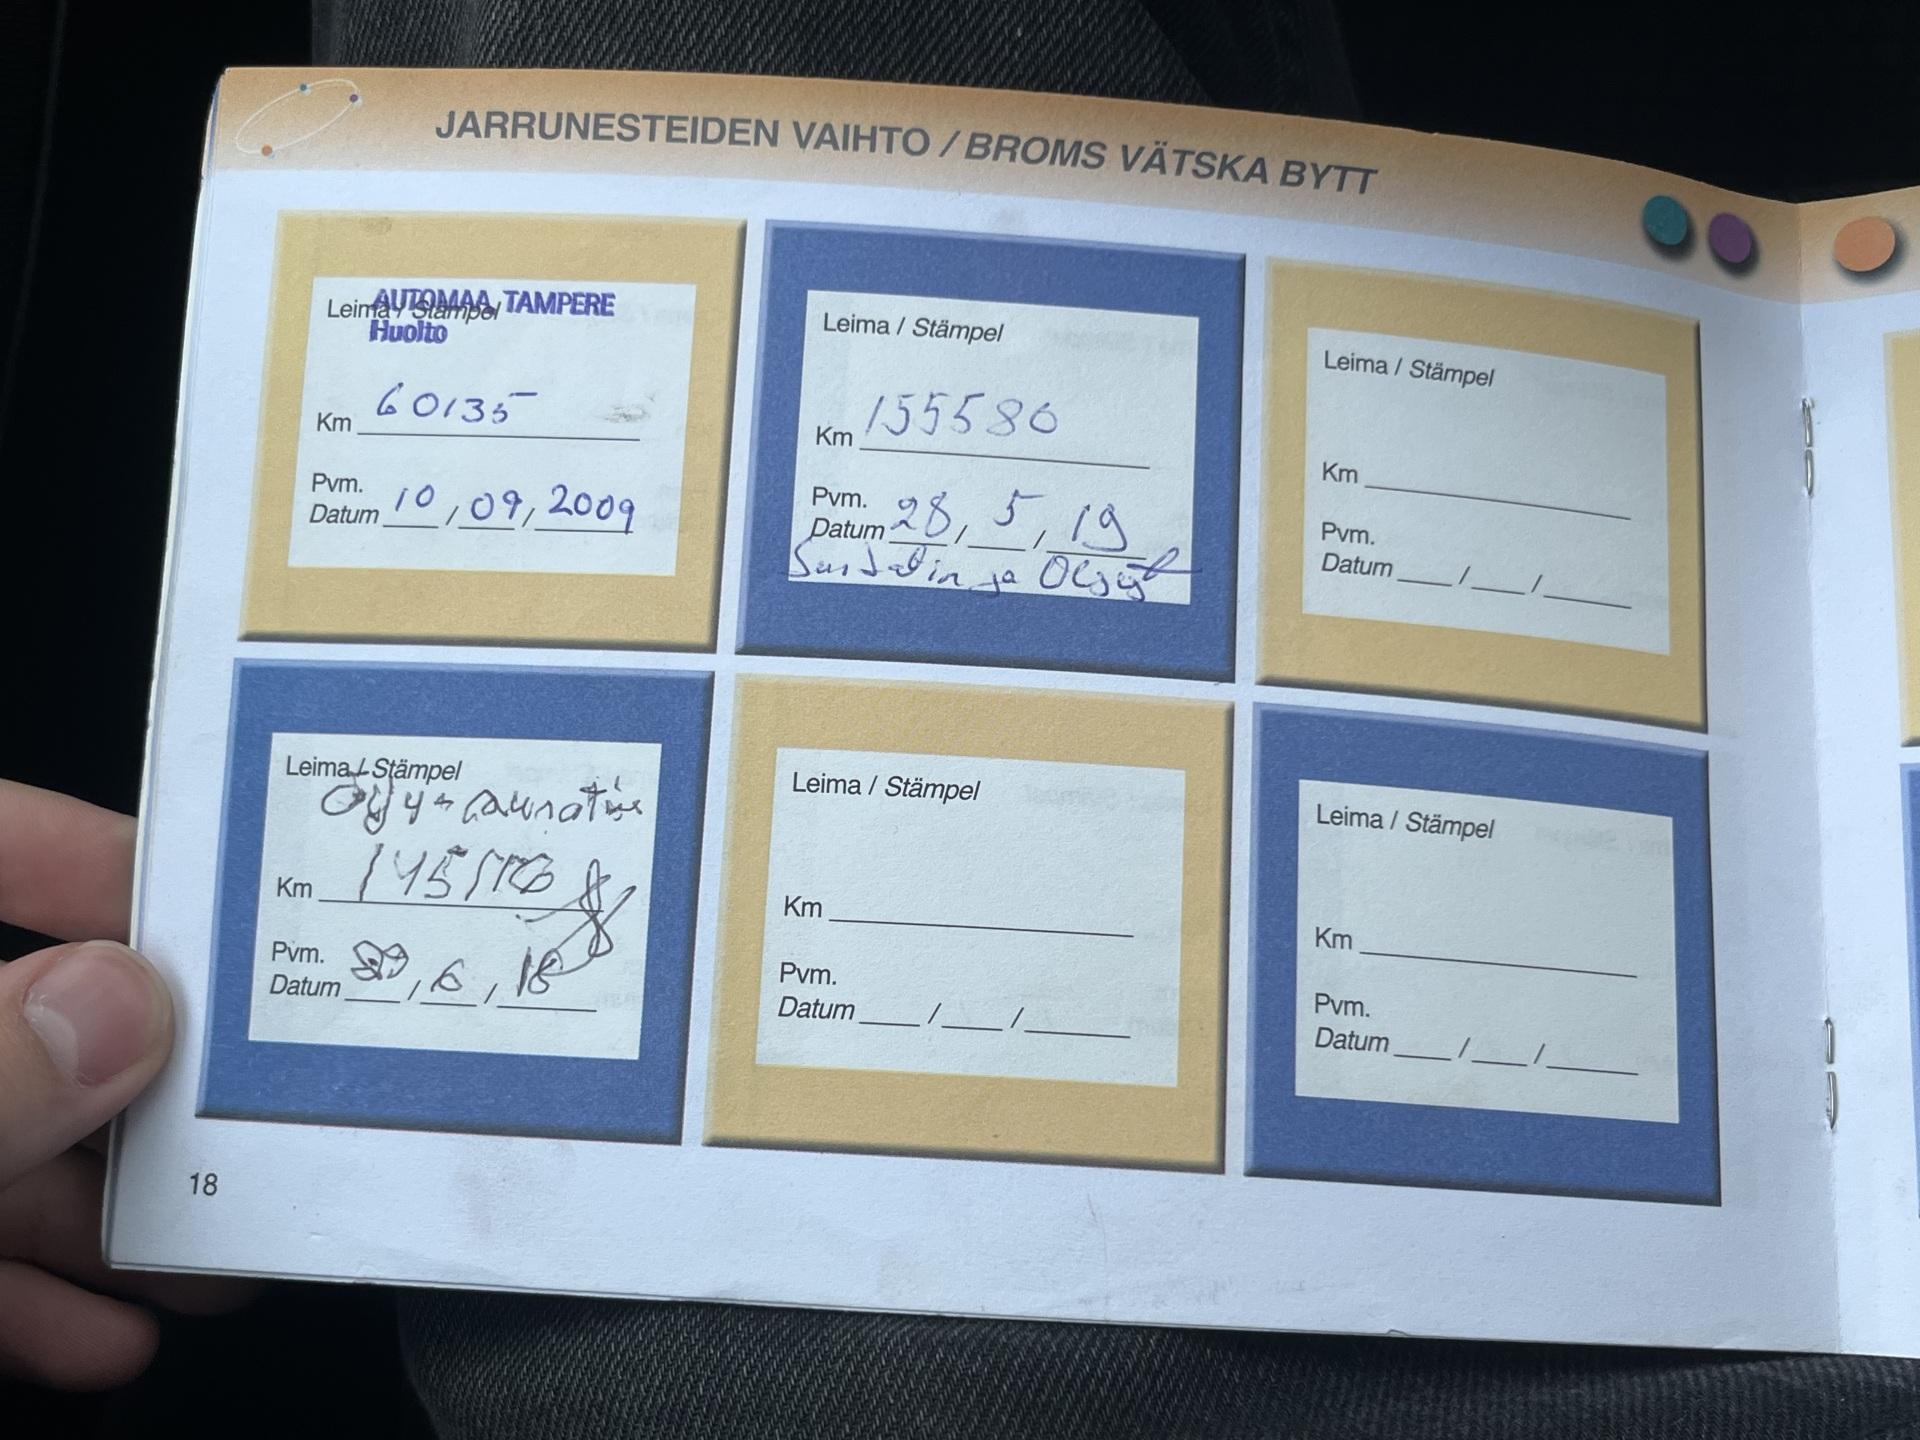 JARRUNESTEIDEN VAIHTO / BROMS VÄTSKA BYTT
AUTOMAA TAMPERE
Leima / Stämpel
Huolto
Km 60135
Pvm.
Datum 10 / 09 / 2009
Leima / Stämpel
Km 155580
Pvm.
Datum 28 / 5 / 19
ja
Leima / Stämpel
Km
Pvm.
Datum ___ / ___ / ___
Leima / Stämpel
Km
Pvm.
Datum / 6 / 18
Leima / Stämpel
Km
Pvm.
Datum ___ / ___ / ___
Leima / Stämpel
Km
Pvm.
Datum ___ / ___ / ___
18